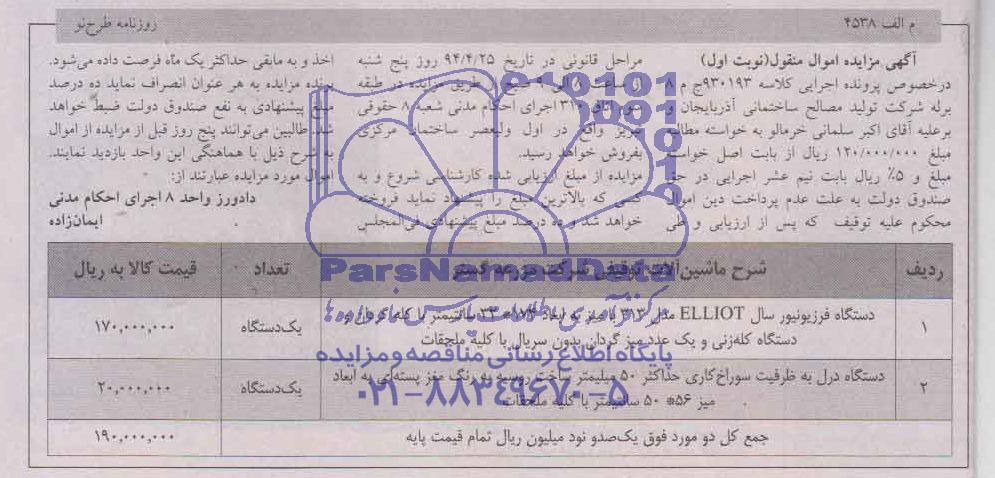 م الف ۴۵۳۸
روزنامه طرح‌نو
آگهی مزایده اموال منقول(نوبت اول)
درخصوص پرونده اجرایی کلاسه ۹۳۰۱۹۳ج م ۸
برله شرکت تولید مصالح ساختمانی آذربایجان و
برعلیه آقای اکبر سلمانی خرمالو به خواسته مطالبه
مبلغ ۱۲۰/۰۰۰/۰۰۰ ریال از بابت اصل خواسته
مبلغ و ۵٪ ریال بابت نیم عشر اجرایی در حق
صندوق دولت به علت عدم پرداخت دین اموال
محکوم علیه توقیف که پس از ارزیابی و طی
مراحل قانونی در تاریخ ۹۴/۴/۲۵ روز پنج شنبه
از ساعت ۸ الی ۹ صبح از طریق مزایده در طبقه
سوم اتاق ۳۱۰ اجرای احکام مدنی شعبه ۸ حقوقی
تبریز واقع در اول ولیعصر ساختمان مرکزی
بفروش خواهد رسید.
مزایده از مبلغ ارزیابی شده کارشناسی شروع و به
کسی که بالاترین مبلغ را پیشنهاد نماید فروخته
خواهد شد و ده درصد مبلغ پیشنهادی فی‌المجلس
اخذ و به مابقی حداکثر یک ماه فرصت داده می‌شود.
برنده مزایده به هر عنوان انصراف نماید ده درصد
مبلغ پیشنهادی به نفع صندوق دولت ضبط خواهد
شد. طالبین می‌توانند پنج روز قبل از مزایده از اموال
به شرح ذیل با هماهنگی این واحد بازدید نمایند.
اموال مورد مزایده عبارتند از:
دادورز واحد ۸ اجرای احکام مدنی
ایمان‌زاده
ردیف شرح ماشین‌آلات توقیفی شرکت مزرعه گستر تعداد قیمت کالا به ریال
۱ دستگاه فرزیونیور سال ELLIOT مدل ۳۱۳ با میز به ابعاد سانتیمتر با کله گردان و
دستگاه کله‌زنی و یک عدد میز گردان بدون سریال با کلیه ملحقات یک‌دستگاه ۱۷۰,۰۰۰,۰۰۰
۲ دستگاه درل به ظرفیت سوراخ‌کاری حداکثر ۵۰ میلیمتر ساخت روسیه به رنگ مغز پسته‌ای به ابعاد
میز ۵۶* ۵۰ سانتیمتر با کلیه ملحقات یک‌دستگاه ۲۰,۰۰۰,۰۰۰
جمع کل دو مورد فوق یک‌صدو نود میلیون ریال تمام قیمت پایه ۱۹۰,۰۰۰,۰۰۰
ParsNamadData
پایگاه اطلاع رسانی مناقصه و مزایده
۰۲۱-۸۸۳۴۹۶۷۰-۵